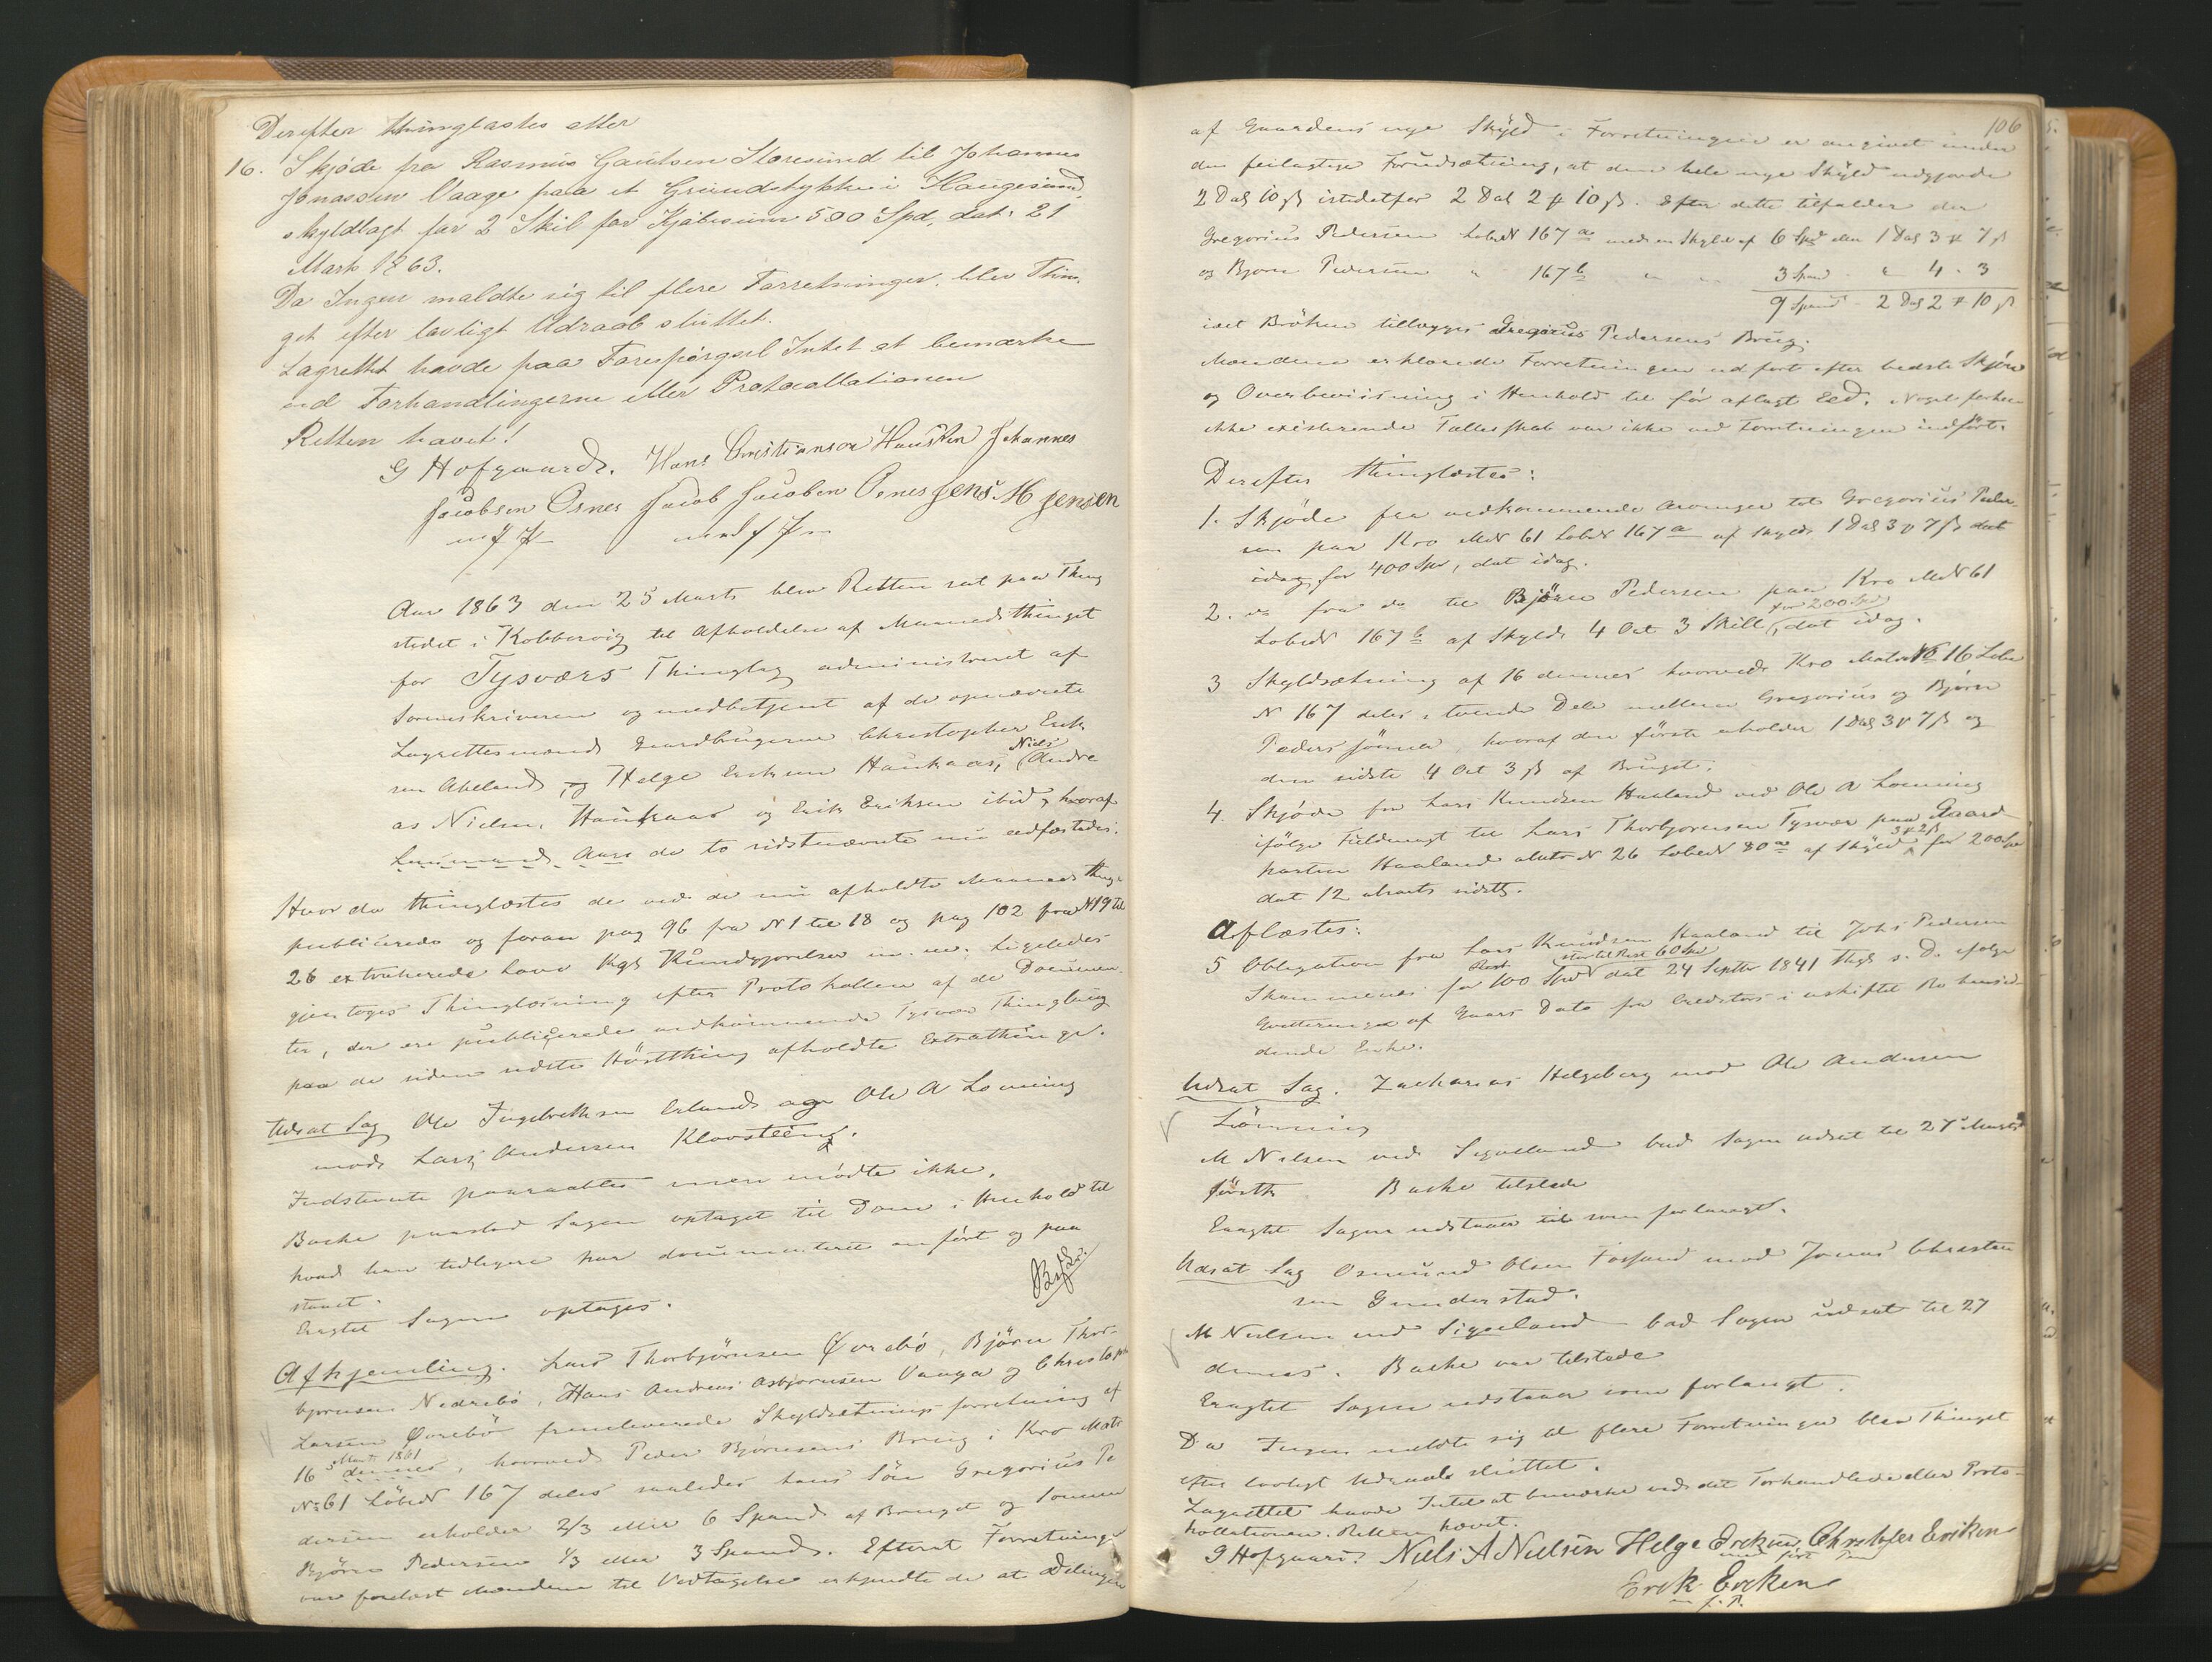 Derefter thinglæstes eller
16. Skjøde fra Rasmus Gautsen Storesund til Johannes
Jonassen Vaage paa et Grundstykke i Haugesund
skyldlagt for 2 Skil for Kjøbesum 500 Spd, dat: 21
Marts 1863.
Da Ingen meldte sig til flere Forretninger, blev Thin-
get efter lovligt Udraab sluttet.
Lagrettet havde paa Forespørgsel Intet at bemærke
ved Forhandlingerne eller Protocollationen
Retten hævet!
G Hofgaard. Hans Christianson Hausken Johannes
Jacobsen Osnes Jacob Jacobsen Osnes Jens M Jensen
m f P med f P
Aar 1863 den 25 Marts blev Retten sat paa Thing
stedet i Kobbervig til Afholdelse af Maanedsthinget
for Tysværs Thinglag administreret af
Sorenskriveren og medbetjent af de opnævnte
Lagrettesmænd Gaardbrugerne Christopher Erik
sen Apeland, og Helge Eriksen Haukaas, Niels Andre
as Nielsen Haukaas og Erik Eriksen ibid, hvoraf
de to sidstnævnte nu edfæstedes.
Hvor da thinglæstes de ved de nu afholdte Maanedsthing
publicerede og foran pag 96 fra N 1 til 18 og pag 102 fra N 19 til
26 extraherede Love Kgl Kundgjørelser m. m. Ligeledes
gjentoges Thinglæsning efter Protokollen af de Documen-
ter, der ere publicerede vedkommende Tysvær Thinglaug
paa de siden sidste Høstthing afholdte Extrathinge.
Udsat Sag Ole Ingebrethsen Erland og Ole A Lønning
mod Lars Andersen Klovsteen.
Indstevnte paaraabtes men mødte ikke.
Bache paastod Sagen optaget til Dom i Henhold til
hvad han tidligere har documenteret anført og paa
staaet.
Eragtet Sagen optages.
Afhjemling. Lars Thorbjørnsen Øvrebø, Bjørn Thor-
bjørnsen Nedrebø, Hans Andreas Asbjørnsen Vaaga og Christoph
Larsen Øvrebø fremleverede Skyldsetningsforretning af
16 dennes, hvorved Peder Bjørnsens Brug i Kro Matr
Marts 1861
No 61 LøbeN 167 deles saaledes hans Søn Gregorius Pe
dersen erholder 2/3 eller 6 Spand af Bruget og Sønnen
Bjørn Pedersen 1/3 eller 3 Spand. Efterat Forretningen
var forelæst Mændene til Vedtagelse erkjendte de at Delingen
106
af Gaardens nye Skyld i Forretningen er angivet under
den feilagtige Forudsætning, at den hele nye Skyld udgjorde
2 Dal 10 ß istedetfor 2 Dal 2 # 10 ß. Efter dette tilfalder der
Gregorius Pedersen LøbeN 167 a med en Skyld af 6 Spd eller 1 Dal 3 # 7 ß
og Bjørn Pedersen " 167 b " " 3 Spand - " 4 - 3
9 Spand - 2 Dal 2 # 10 ß
idet Brøken tillægges Gregorius Pedersens Brug.
Mændene erklærede Forretningen udført efter bedste Skjøn
og Overbeviisning i Henhold til før aflagt Eed. Noget forhen
ikke existerende Fællesskab var ikke ved Forretningen indført.
Derefter thinglæstes:
1. Skjøde fra vedkommende Arvinger til Gregorius Peder-
sen paa Kro MN 61 LøbeN 167 a af Skyld 1 Dal 3 # 7 ß dat
idag, for 400 Spd, dat idag.
2. do fra do til Bjørn Pedersen paa Kro MN 61
LøbeN 167 b af Skyld 4 Ort 3 Skill, for 200 Spd dat idag.
3 Skyldsætning af 16 dennes hvorved Kro Matr No 16 Løbe
N 167 deles i tvende Dele mellem Gregorius og Bjørn
Peders sønner, hvoraf den første erholder 1 Dal 3 # 7 ß og
den sidste 4 Ort 3 ß af Bruget.
4. Skjøde fra Lars Knudsen Haaland ved Ole A Lønning
ifølge Fuldmagt til Lars Thorbjørnsen Tysvær paa Gaard-
parten Haaland MatrN 26 LøbeN 80 a af Skyld 3 # 2 ß for 200 Spd
dat 12 Marts sidstl.
Aflæstes:
5 Obligation fra Lars Knudsen Haaland til Johs Pedersen
Skammenes for 100 Spd dat 24 Septbr 1841 thgl s. D. ifølge
stor til Rest 60 Spd
Qvitteringer af Gaars Dato fra Creditors i uskiftet Bo hensid-
dende Enke.
Udsat Sag. Zacharias Helgeberg mod Ole Andersen
Lønning
M Nielsen ved Siqveland bad Sagen udsat til 27 Marts
først. Bache tilstede
Eragtet Sagen udstaaer til som forlangt.
Udsat Sag Osmund Olsen Fosland mod Jonas Christen
sen Gunderstad.
M Nielsen ved Siqveland bad Sagen udsat til 27
dennes. Bache var tilstede
Eragtet Sagen udstaaer som forlangt.
Da Ingen meldte sig til flere Forretninger blev Thinget
efter lovligt Udraab sluttet.
Lagrettet havde Intet at bemærke ved det Forhandlede eller Proto-
kollationen. Retten hævet.
G Hofgaard. Niels A Nielsen Helge Ericksen Christofer Eriksen
med ført Pen
Erik Ericksen
m f. P.